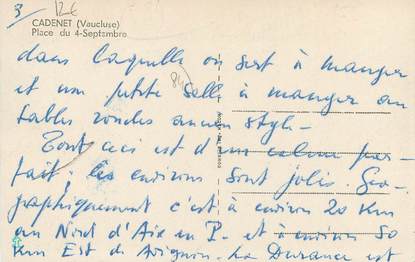 3/ 12€
CADENET (Vaucluse)
Place du 4-Septembre
dans laquelle on sert à manger
84
et une petite salle à manger au
tables rondes ancien style -
Tout ceci est d'un calme par-
fait. les environs sont jolis. Géo-
graphiquement c'est à environ 20 Km
au Nord d'Aix en P. et à environ 50
Km Est de Avignon. La Durance est